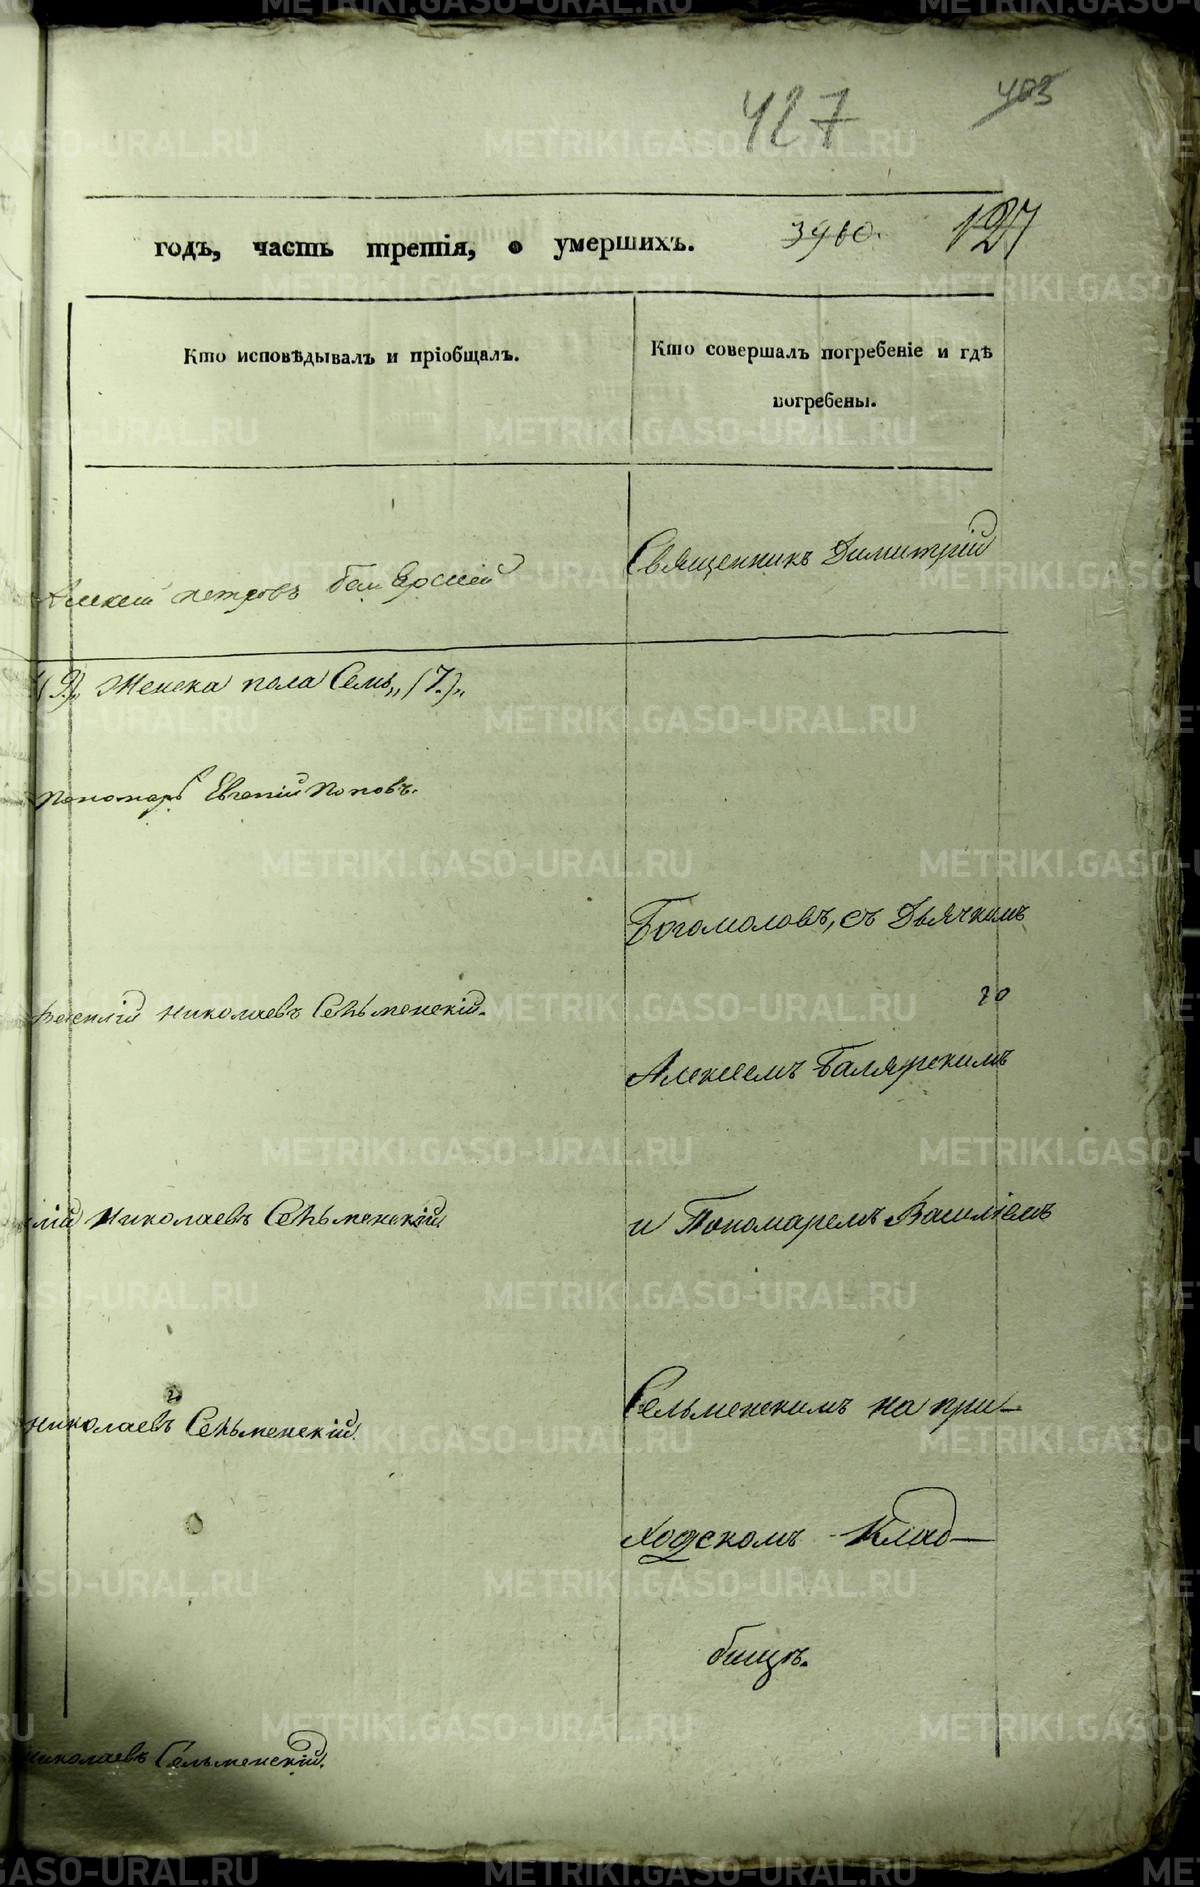 427
403
годъ, часть третія, о умершихъ.
3960.
127
Кто исповѣдывалъ и пріобщалъ.
Кто совершалъ погребеніе и гдѣ
погребены.
Священникъ Димитрій
Алексѣй Петровъ
(9.) Женска пола Семь,, (7.),,
Пономарь Евгеній Поповъ.
Богомоловъ, съ Дьячкомъ
Василій Николаевъ Сельменскій.
го
Алексеемъ Балярскимъ
лій Николаевъ Сельменскій
и Пономаремъ Василіемъ
го
Николаевъ Сельменскій.
Сельменскимъ на при-
ходскомъ Клад-
бищѣ.
Николаевъ Сельменскій.
METRIKI.GASO-URAL.RU